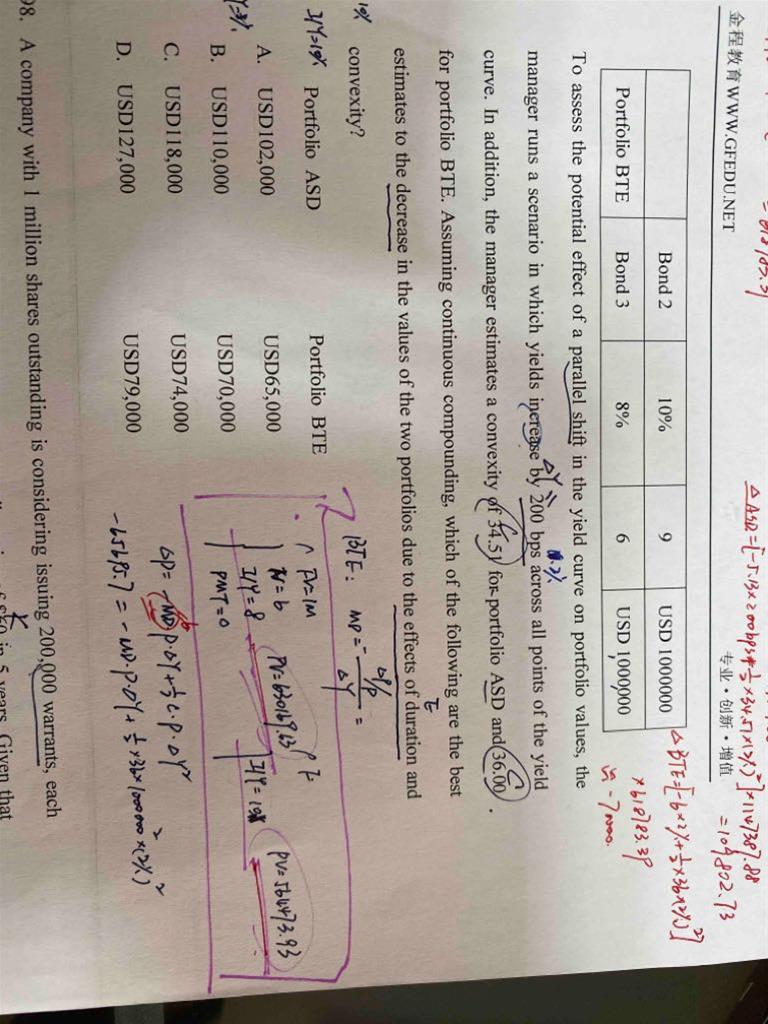 = 618783.39
金程教育WWW.GFEDU.NET
专业·创新·增值
ΔASD=[-5.13×200bps+½×34.51×(2%)²]×1147387.88
=109802.73
Bond 2 10% 9 USD 1000000
Portfolio BTE Bond 3 8% 6 USD 1000000
ΔBTE=[-6×2%+½×36×(2%)²]
×618783.39
≈ -70000.
To assess the potential effect of a parallel shift in the yield curve on portfolio values, the
ΔY
manager runs a scenario in which yields increase by 200 bps across all points of the yield
curve. In addition, the manager estimates a convexity of 34.51 for portfolio ASD and 36.00
for portfolio BTE. Assuming continuous compounding, which of the following are the best
estimates to the decrease in the values of the two portfolios due to the effects of duration and
convexity?
I/Y=10% Portfolio ASD Portfolio BTE
A. USD102,000 USD65,000
B. USD110,000 USD70,000
C. USD118,000 USD74,000
D. USD127,000 USD79,000
BTE: MD=-ΔP/P/ΔY =
FV=1M
N=6 PV=630169.63
I/Y=8 I/Y=10%
PMT=0 PV=564473.93
ΔP=-MD·P·ΔY+½C·P·ΔY²
-65695.7=-MD·P·ΔY+½×36×1000000×(2%)²
98. A company with 1 million shares outstanding is considering issuing 200,000 warrants, each
in 5 years. Given that